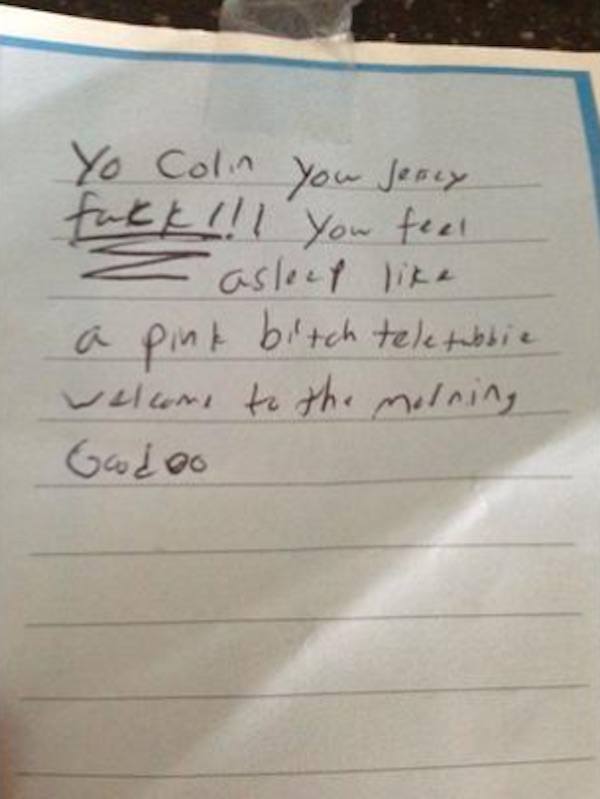 Yo Colin you Jersy
fukk!!! You feel
asleep like
a pink bitch teletubbie
welcome to the morning
Gadoo